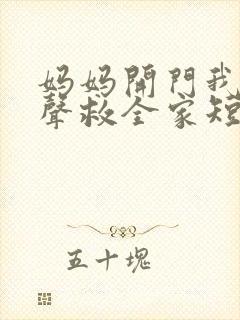 妈妈開門我
聲救全家短
五十塊